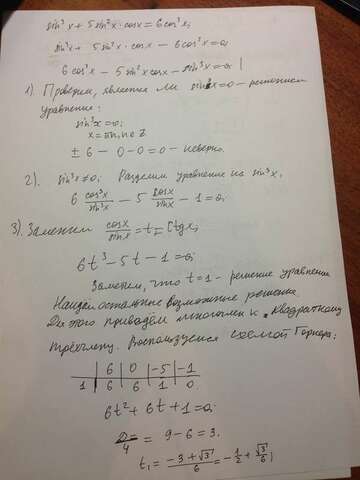 sin³x + 5sin²x·cosx = 6cos³x;
sin³x + 5sin²x·cosx − 6cos³x = 0;
6cos³x − 5sin²x cosx − sin³x = 0; |
1) Проверим, является ли sin³x = 0 – решением
уравнения:
sin³x = 0;
x = πn, n ∈ Z
± 6 − 0 − 0 = 0 – неверно.
2). sin³x ≠ 0; Разделим уравнение на sin³x;
6 cos³x/sin³x − 5 cosx/sinx − 1 = 0;
3). Заменим cosx/sinx = t = Ctgx;
6t³ − 5t − 1 = 0;
Заметим, что t = 1 – решение уравнения
Найдём остальные возможные решения.
Для этого приведём многочлен к квадратному
трёхчлену. Воспользуемся схемой Горнера:
| 6 | 0 | −5 | −1
1 | 6 | 6 | 1 | 0
6t² + 6t + 1 = 0;
D/4 = 9 − 6 = 3.
t₁ = (−3 + √3)/6 = −1/2 + √3/6 |